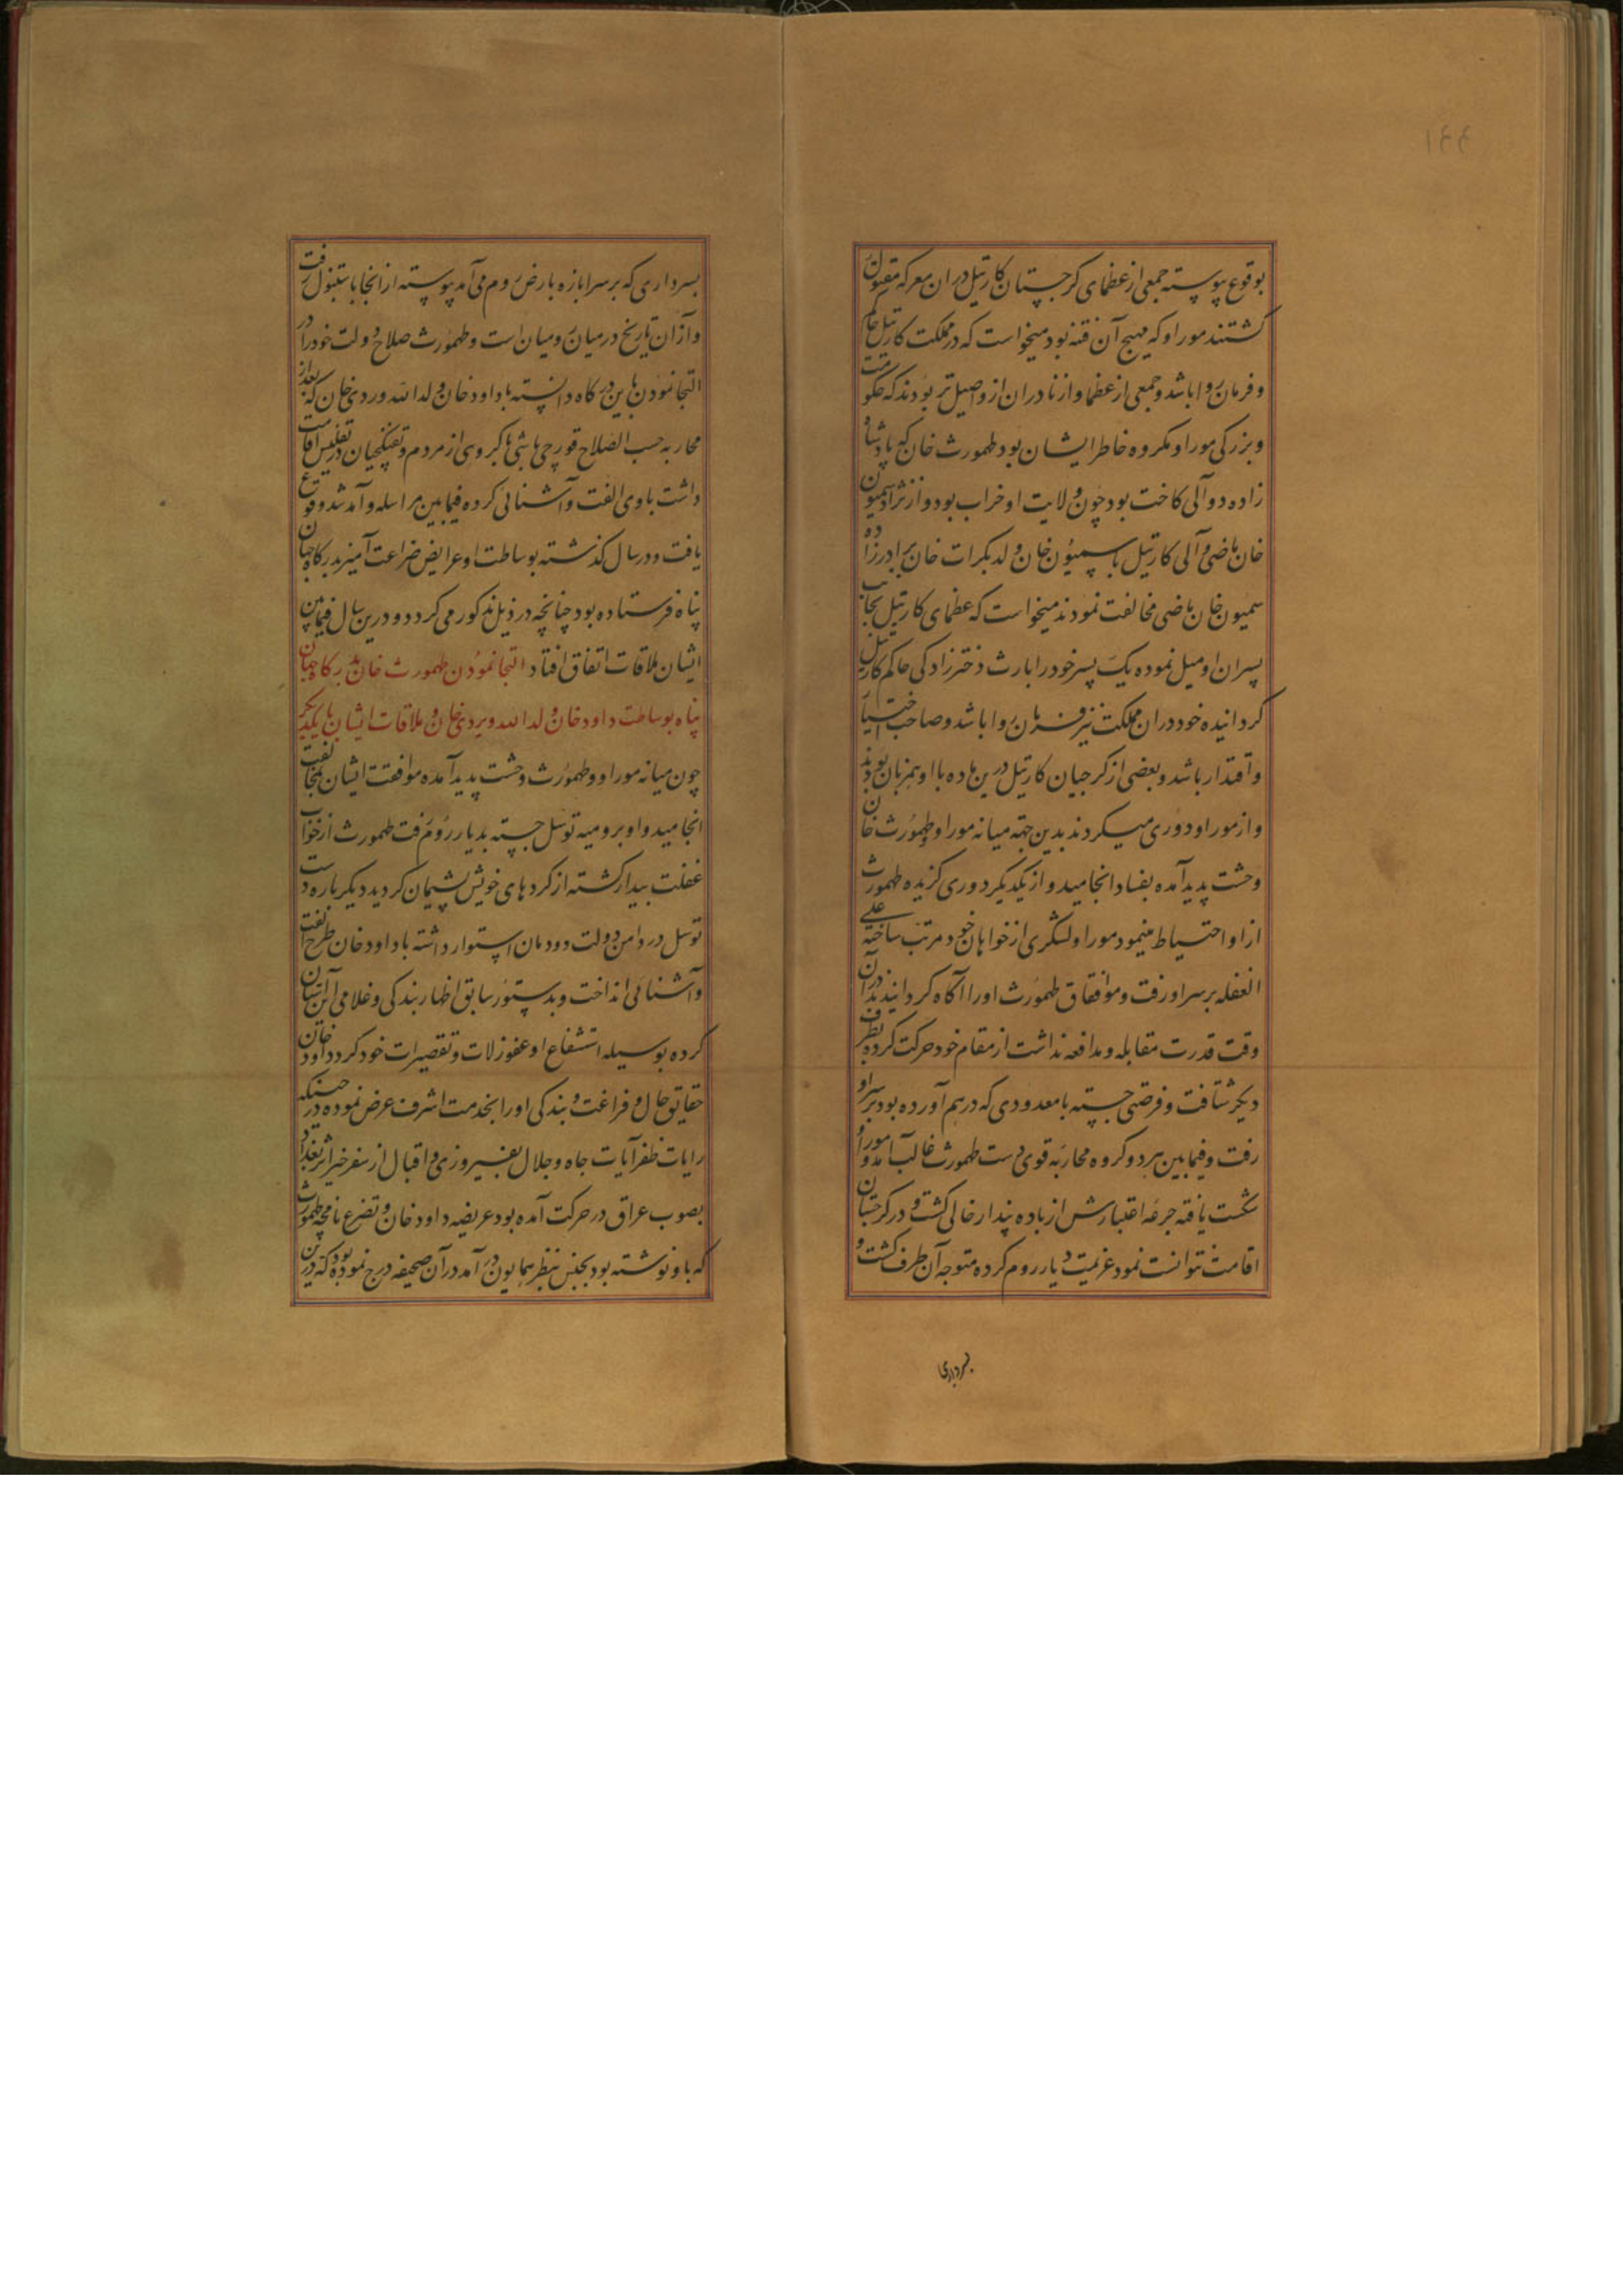 ۱۴۴
بوقوع پیوسته جمعی از عظمای کرجستان کارتیل در ان معرکه مقتول
کشتند موراو که مهیج آن فتنه بود میخواست که در مملکت کارتیل حاکم
و فرمان روا باشد و جمعی از عظما و ازنادران از و اصیل تر بودند که حکومت
و بزرکی موراو مکروه خاطر ایشان بود طهمورث خان که پادشاه
زاده و والی کاخت بود چون ولایت او خراب بود و از نژاد سمیون
خان ماضی والی کارتیل با سمیون خان ولد بکرات خان برادرزاده
سمیون خان ماضی مخالفت نمودند میخواست که عظمای کارتیل بجانب
پسران او میل نموده یک پسر خود را بارث دخترزادکی حاکم کارتیل
کردانیده خود دران مملکت نیز فرمان روا باشد و صاحب اختیار
و اقتدار باشد و بعضی از کرجیان کارتیل درین ماده با او همزبان بودند
و از موراو دوری میکردند بدین جهة میانه موراو و طهمورث خان
وحشت پدید آمده بفساد انجامید و از یکدیکر دوری کزیده طهمورث
ازو احتیاط مینمود موراو لشکری از خواهان خود مرتب ساخته علی
الغفله بر سر او رفت و موافقان طهمورث او را آکاه کردانیدند در آن
وقت قدرت مقابله و مدافعه نداشت از مقام خود حرکت کرده بطرف
دیکر شتافت و فرصتی جسته با معدودی که در هم آورده بود بر سر او
رفت و فیمابین هر دو کروه محاربه قوی دست طهمورث غالب آمد و موراو
شکست یافته جرعه اعتبارش از باده پندار خالی کشت و در کرجستان
اقامت نتوانست نمود عزیمت دیار روم کرده متوجه آن طرف کشت و
بسرداری
بسرداری که بر سر ابازه بارض روم می آمد پیوسته از انجا باستنبول رفت
و از ان تاریخ در میان رومیان است و طهمورث صلاح دولت خود را در
التجا نمودن باین درکاه دانسته با داود خان ولد الله وردی خان که بعد از
محاربه حسب الصلاح قورچی باشی با کروهی از مردم و تفنکچیان در تفلیس اقامت
داشت با وی الفت و آشنائی کرده فیمابین مراسله و آمد شد وقوع
یافت و در سال کذشته بوساطت او عرایض ضراعت آمیز بدرکاه جهان
پناه فرستاده بود چنانچه در ذیل مذکور می کردد و درین سال فیمابین
ایشان ملاقات اتفاق افتاد التجا نمودن طهمورث خان بدرکاه جهان
پناه بوساطت داود خان ولد الله ویردی خان و ملاقات ایشان با یکدیکر
چون میانه موراو و طهمورث وحشت پدید آمده موافقت ایشان بمخالفت
انجامید و او برومیه توسل جسته بدیار روم رفت طهمورث از خواب
غفلت بیدار کشته از کردهای خویش پشیمان کردید دیکر باره دست
توسل در دامن دولت دودمان استوار داشته با داود خان طرح الفت
و آشنائی انداخت و بدستور سابق اظهار بندکی و غلامی این آستان
کرده بوسیله استشفاع او عفو زلات و تقصیرات خود کرد داود خان
حقایق حال و فراغت و بندکی او را بخدمت اشرف عرض نموده در حینیکه
رایات ظفر آیات جاه و جلال بفیروزی و اقبال از سفر خیر اثر بغداد
بصوب عراق در حرکت آمده بود عریضه داود خان و تضرع نامچه طهمورث
که باو نوشته بود بجنس بنظر همایون در آمد در آن صحیفه درج نموده بود که درین